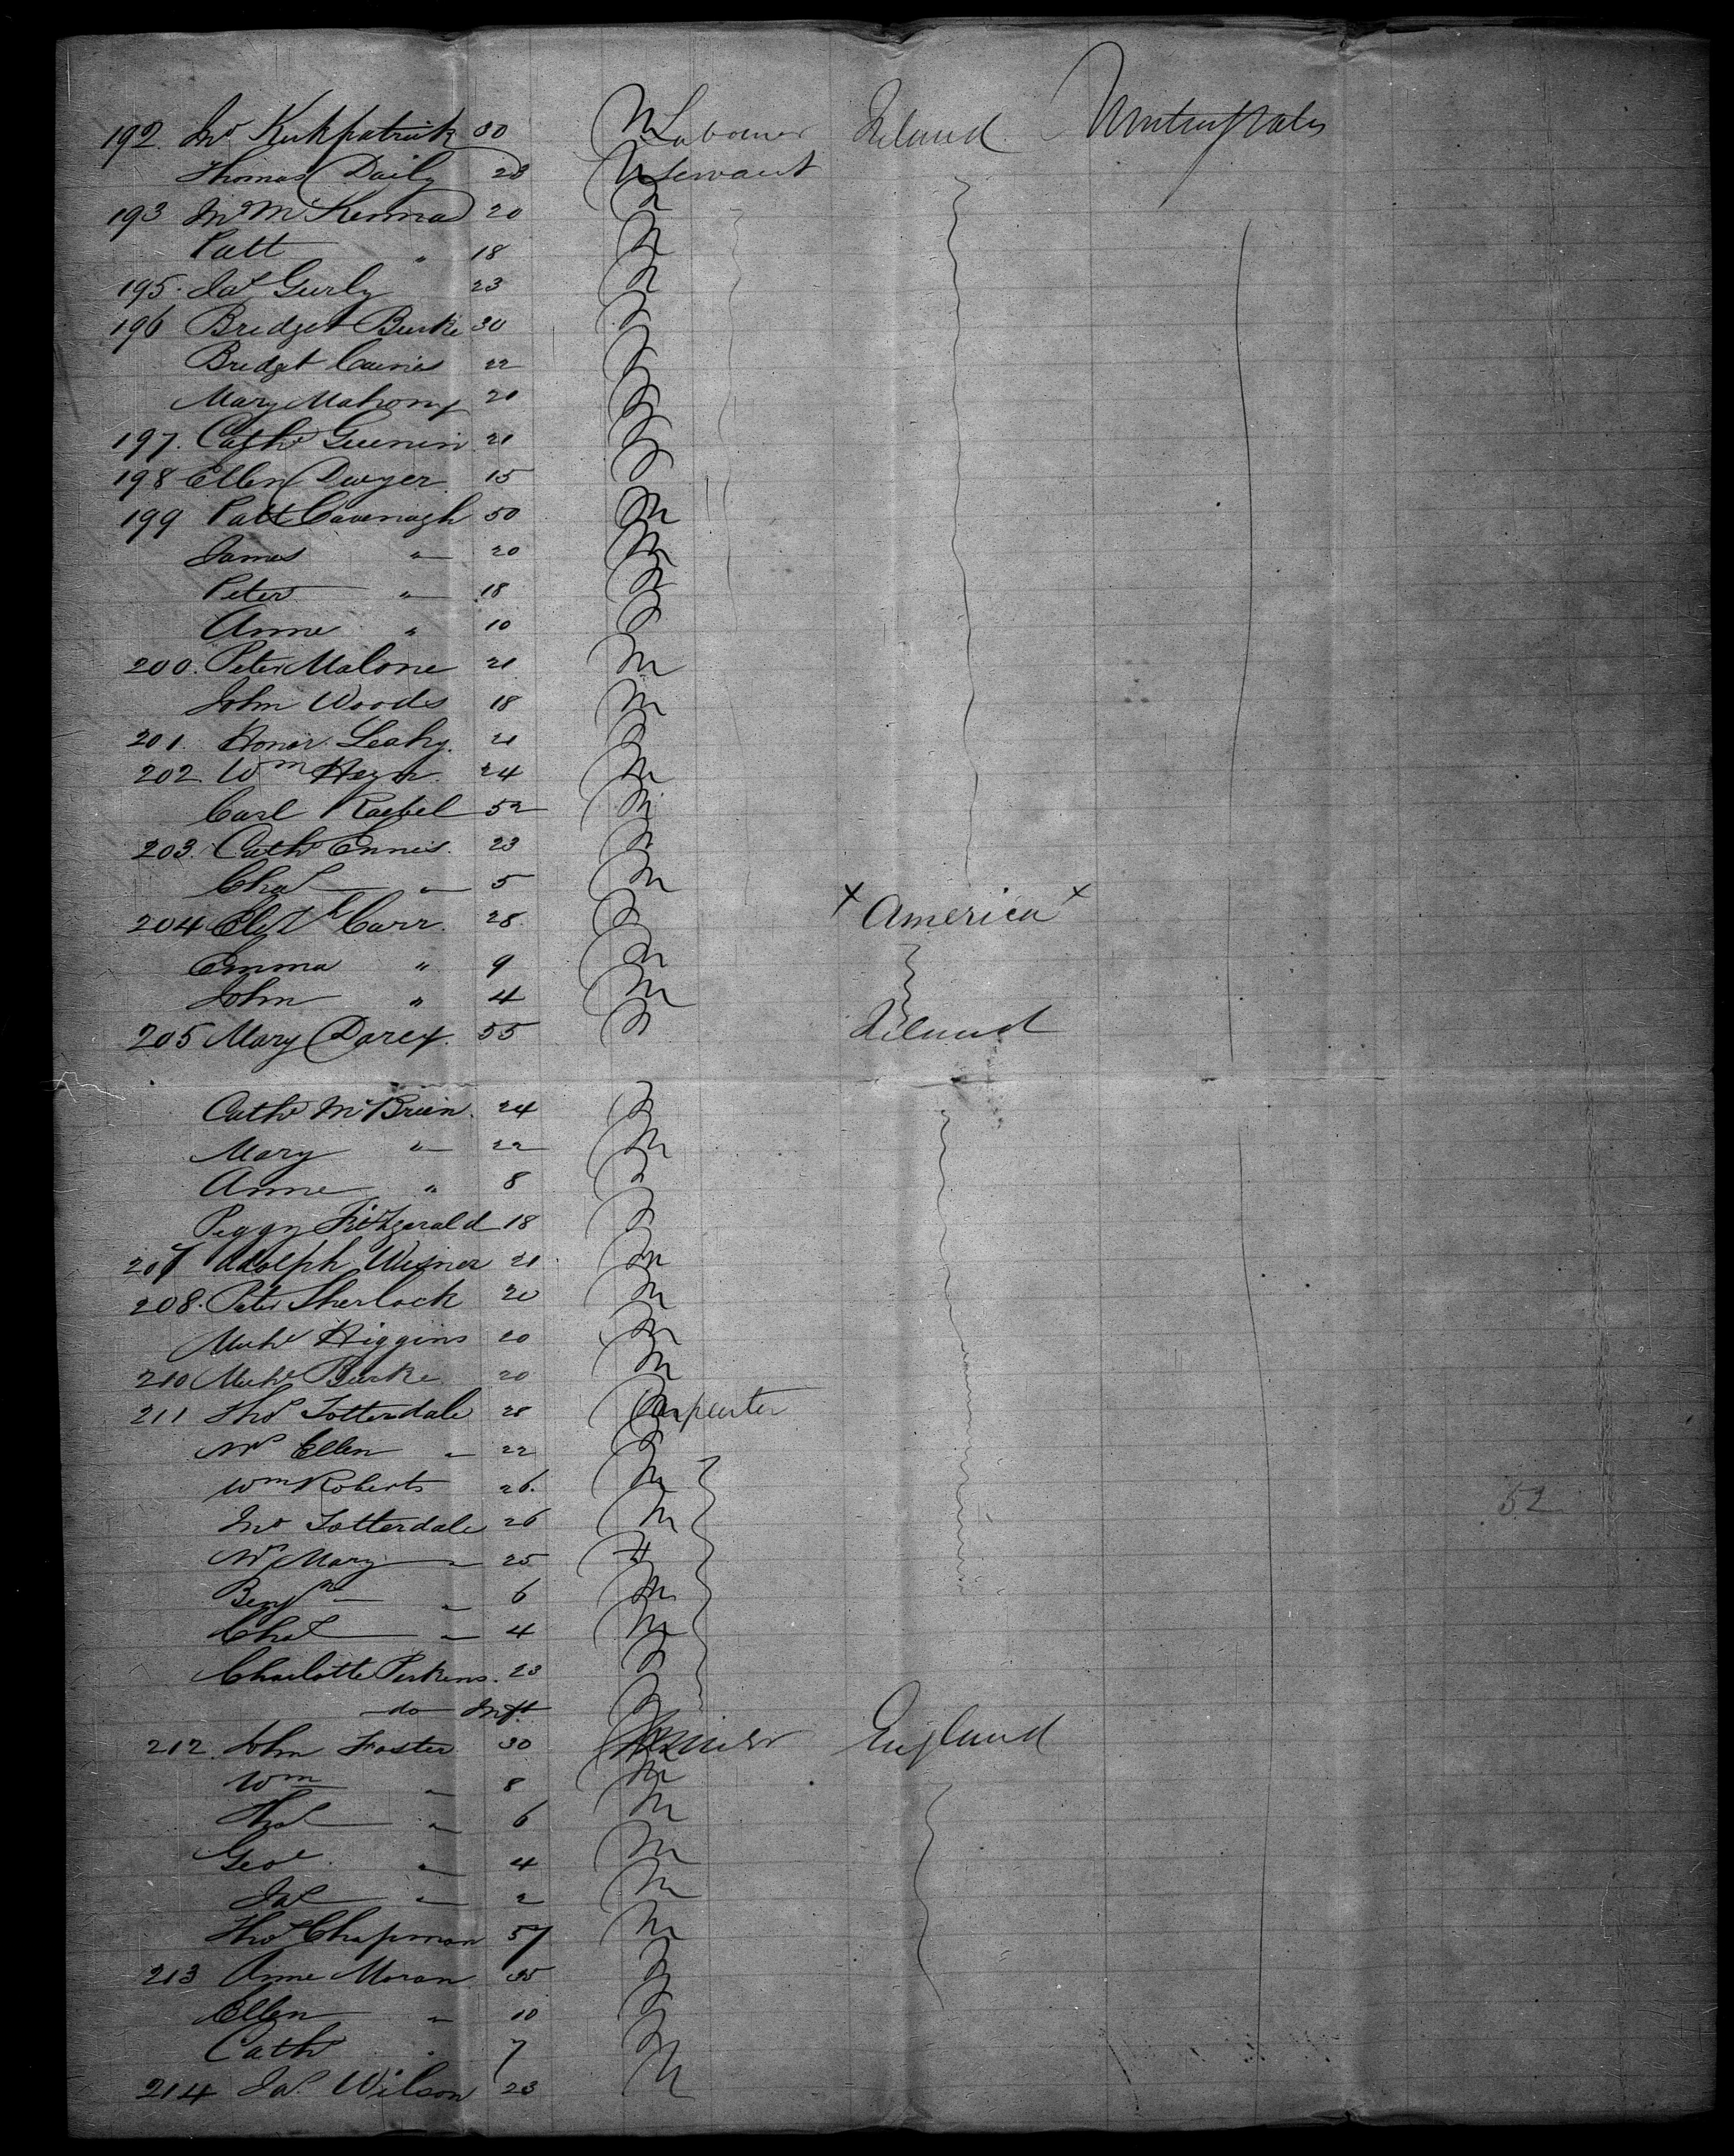 192. Jno Kirkpatrick 30 M Labourer Ireland United States
Thomas Daily 23 M Servant
193 Jno McKenna 20
Patt " 18
195. Jas Gurly 23
196 Bridget Burke 30
Bridget 22
Mary Mahony 20
197. Cathe 21
198 Ellen Dwyer 15
199 Patt Cavenagh 50 M
James " 20 M
Peter " 18
Anne " 10
200. Peter Malone 21 M
John Woods 18 M
201. Honor Leahy. 21
202. Wm 24 M
Carl Raebel 52 M
203. Cathe Ennis. 23
Chas " 5 M
204 Elizth Carr. 28 x America x
Emma " 9
John " 4 M
205 Mary Darcy. 55 Ireland
Cathe McBrien. 24
Mary " 22
Anne " 8
Peggy Fitzgerald 18
207 Adolph 21 M
208. Peter Sherlock 20 M
Miche Higgins 20 M
210 Miche Burke 20 M
211 Thos Totterdale 28 Carpenter
Mrs Ellen " 22
Wm Roberts 26. M
Jno Totterdale 26 M
Mrs Mary " 25
Benjn " 6 M
Chas " 4 M
Charlotte Perkins. 23
do Inft
212. John Foster 30 England
Wm " 8 M
Thos " 6 M
Geoe " 4 M
Jas " 2 M
Thos Chapman 57 M
213 Anne Moran 35
Ellen " 10
Cathe 7
214 Jas. Wilson 23 M
52